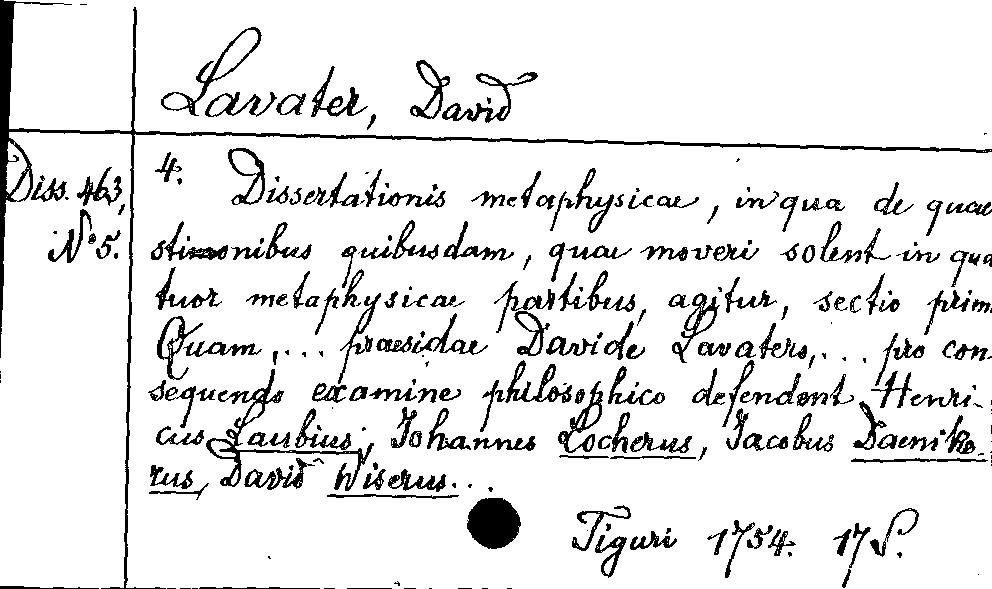 Lavater, David
Diss. 463,
No 5.
4. Dissertationis metaphysicae, in qua de quae
stionibus quibusdam, quae moveri solent in qua
tuor metaphysicae partibus, agitur, sectio prim
Quam,... praesidae Davide Lavatero,... pro con
sequendo examine philosophico defendent Henri-
cus Laubius, Johannes Locherus, Jacobus Daenike-
rus, David Wiserus...
Tiguri 1754. 17 S.